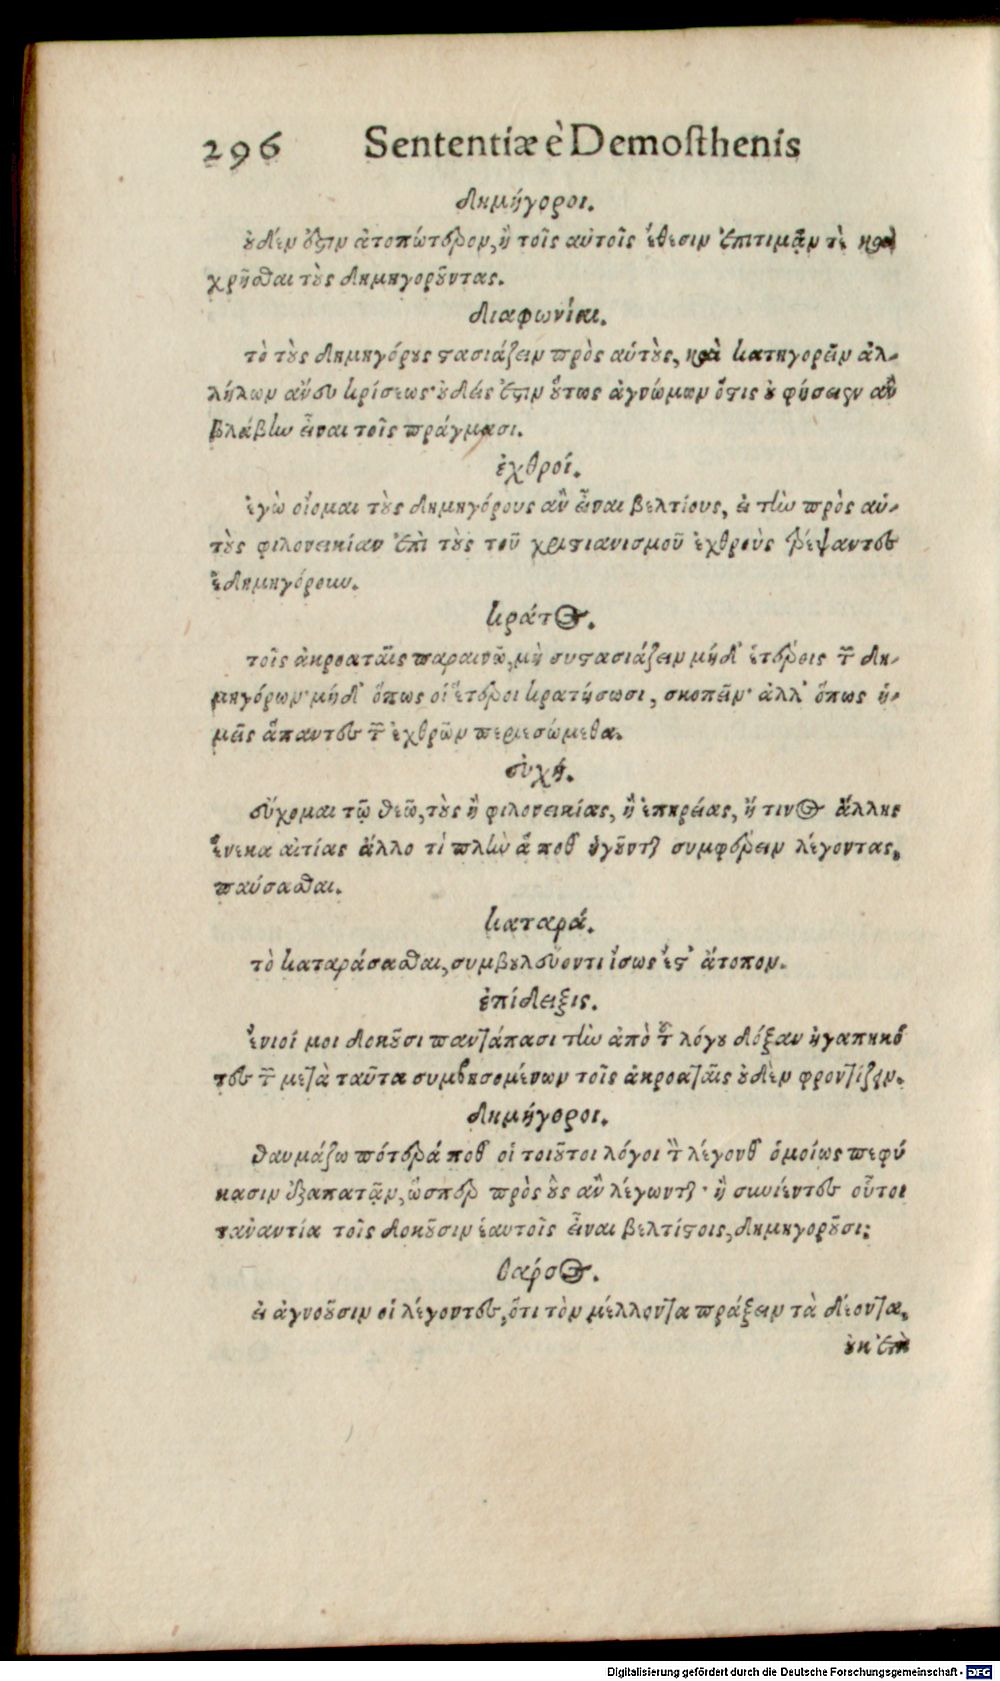 296 Sententiæ è Demosthenis
δημήγοροι.
οὐδέν ἐστιν ἀτοπώτερον, ἢ τοῖς αὐτοῖς ἔθεσιν ἐπιτιμᾶν τὲ καὶ
χρῆσθαι τοὺς δημηγοροῦντας.
διαφωνίαι.
τὸ τοὺς δημηγόρους στασιάζειν πρὸς αὑτοὺς, καὶ κατηγορεῖν ἀλ-
λήλων ἄνευ κρίσεως· οὐδείς ἐστιν οὕτως ἀγνώμων ὅστις οὐ φήσειεν ἂν
βλάβην εἶναι τοῖς πράγμασι.
ἐχθροί.
ἐγὼ οἴομαι τοὺς δημηγόρους ἂν εἶναι βελτίους, εἰ τὴν πρὸς αὑ-
τοὺς φιλονεικίαν ἐπὶ τοὺς τοῦ χριστιανισμοῦ ἐχθροὺς ῥέψαντες
ἐδημηγόρουν.
κράτος.
τοῖς ἀκροαταῖς παραινῶ, μὴ συστασιάζειν μήδ' ἑτέροις τῶν δη-
μηγόρων· μήδ' ὅπως οἱ ἕτεροι κρατήσωσι, σκοπεῖν· ἀλλ' ὅπως ἡ-
μεῖς ἅπαντες τῶν ἐχθρῶν περιεσώμεθα.
εὐχή.
εὔχομαι τῷ θεῷ, τοὺς ἢ φιλονεικίας, ἢ ἐπηρείας, ἤ τινος ἄλλης
ἕνεκα αἰτίας ἄλλο τὶ πλὴν ἅ ποθ' ἡγοῦνται συμφέρειν λέγοντας,
παύσασθαι.
καταρά.
τὸ καταράσασθαι, συμβουλεύοντι ἴσως ἔστ' ἄτοπον.
ἐπίδειξις.
ἔνιοί μοι δοκοῦσι παντάπασι τὴν ἀπὸ τοῦ λόγου δόξαν ἠγαπηκό
τες τῶν μετὰ ταῦτα συμβησομένων τοῖς ἀκροαταῖς οὐδὲν φροντίζειν.
δημήγοροι.
θαυμάζω πότερά ποθ' οἱ τοιοῦτοι λόγοι τοὺς λέγονθ' ὁμοίως πεφύ
κασιν ἐξαπατᾷν, ὥσπερ πρὸς οὓς ἂν λέγωνται· ἢ συνιέντες οὗτοι
τἀναντία τοῖς δοκοῦσιν ἑαυτοῖς εἶναι βελτίστοις, δημηγοροῦσι;
θάρσος.
εἰ ἀγνοοῦσιν οἱ λέγοντες, ὅτι τὸν μέλλοντα πράξειν τὰ δέοντα,
οὐκ ἐπὶ
Digitalisierung gefördert durch die Deutsche Forschungsgemeinschaft - DFG